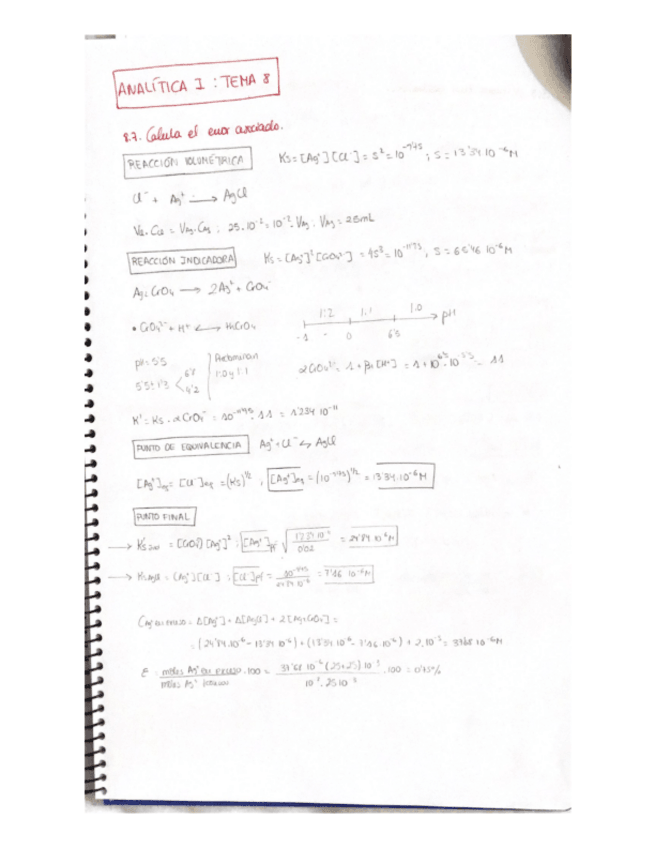 ANALÍTICA I : TEMA 8
8.7. Calcula el error asociado.
REACCIÓN VOLUMÉTRICA Ks = [Ag⁺][Cl⁻] = S² = 10⁻⁹'⁷⁵ ; S = 13'34·10⁻⁶ M
Cl⁻ + Ag⁺ → AgCl
25·10⁻² = 10⁻²·VAg ; VAg = 25 mL
REACCIÓN INDICADORA Ks = [Ag⁺]² [CrO₄²⁻] = 4S³ = 10⁻¹¹'⁹⁵, S = 65'46 10⁻⁶ M
Ag₂CrO₄ → 2Ag⁺ + CrO₄⁻
• CrO₄²⁻ + H⁺ ↔ HCrO₄
1:2 1:1 1:0
-1 0 6'5 pH
pH = 5'5 Predominan
5'5±1'3 4'2 1:0 y 1:1
αCrO₄²⁻ = 1 + β₁[H⁺] = 1 + 10⁶'⁵·10⁻⁵'⁵ = 11
K' = Ks · αCrO₄⁻ = 10⁻¹¹'⁹⁵ · 11 = 1'234 10⁻¹¹
PUNTO DE EQUIVALENCIA Ag⁺ + Cl⁻ ↔ AgCl
[Ag⁺]eq = [Cl⁻]eq = (Ks)^1/2 ; [Ag⁺]eq = (10⁻⁹'⁷⁵)^1/2 = 13'34·10⁻⁶ M
PUNTO FINAL
[Ag⁺]pf 0'02 = 24'84 10⁻⁶ M
→ [Ag⁺][Cl⁻] ; [Cl⁻]pf = 10⁻⁹'⁷⁵ = 7'16 10⁻⁶ M
= Δ[Ag⁺] + Δ[AgCl] + 2[Ag₂CrO₄] =
= (24'84·10⁻⁶ - 13'34 10⁻⁶) + (13'34·10⁻⁶ - 7'16 10⁻⁶) + 2·10⁻⁵ = 37'68 10⁻⁶ M
moles Ag⁺ en exceso · 100 = 37'68 10⁻⁶ (25+25) 10⁻³ · 100 = 0'75%
moles Ag⁺